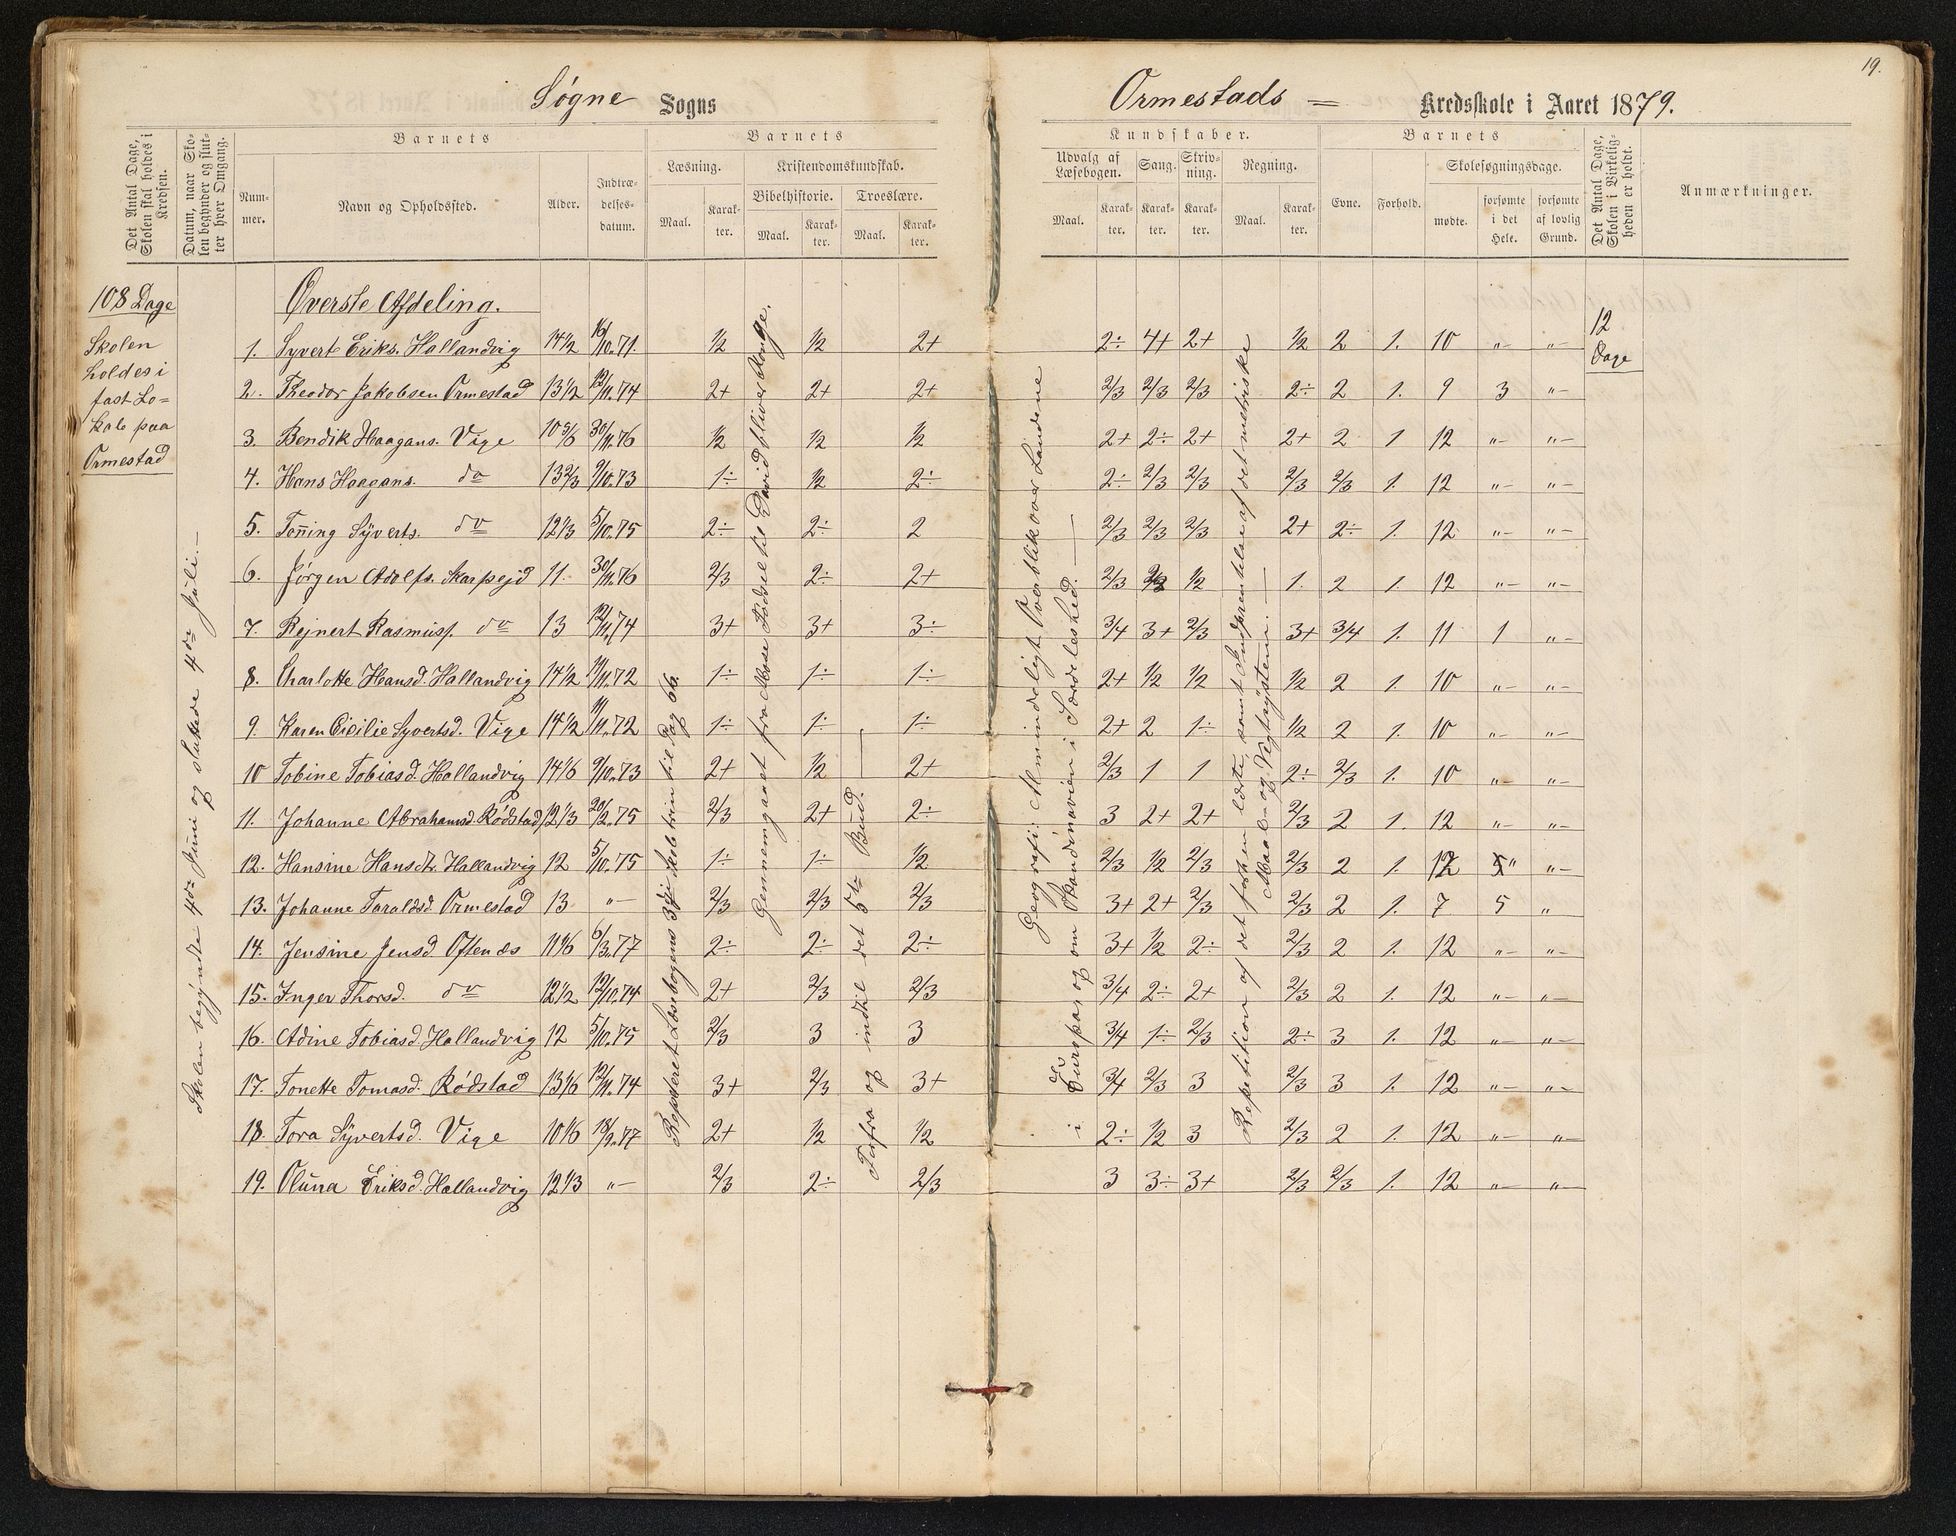 19.
Søgne Sogns Ormestads = Kredsskole i Aaret 1879.
Det Antal Dage, Skolen skal holdes i Kredsen.
Datum, naar Skolen begynder og slutter hver Omgang.
Barnets
Nummer.
Navn og Opholdssted.
Alder.
Indtrædelsesdatum.
Barnets
Læsning.
Maal.
Karakter.
Kristendomskundskab.
Bibelhistorie.
Maal.
Karakter.
Troeslære.
Maal.
Karakter.
Kundskaber.
Udvalg af Læsebogen.
Maal.
Karakter.
Sang.
Karakter.
Skrivning.
Karakter.
Regning.
Maal.
Karakter.
Barnets
Evne.
Forhold.
Skolesøgningsdage.
mødte.
forsømte i det Hele.
forsømte af lovlig Grund.
Det Antal Dage, Skolen i Virkeligheden er holdt.
Anmærkninger.
108 Dage
Skolen
holdes i
fast Lo=
kale paa
Ormestad
Skolen begyndte 4de Juni og sluttede 4de Juli.—
Øverste Afdeling.
12
Dage
1. Syvert Eriks. Hallandvig 14 1/2 16/10.71. 1/2 1/2 2+ 2÷ 4+ 2+ 1/2 2 1. 10 „– „–
2. Theodor Jakobsen Ormestad 13 1/2 12/11.74 2+ 2+ 2+ 2/3 2/3 2/3 2÷ 2 1. 9 3 „–
3. Bendik Haagans. Vige 10 5/6 30/11.76 1/2 1/2 1/2 2+ 2÷ 2+ 2+ 2 1 12 „– „–
4. Hans Haagans. do 13 2/3 9/10.73 1÷ 1/2 2÷ 2÷ 2/3 2/3 2/3 2/3 1. 12 „– „–
5. Tønning Syverts. do 12 1/3 5/10.75 2÷ 2÷ 2 2/3 2/3 2/3 2+ 2÷ 1. 12 „– „–
6. Jørgen Adolfs. Skarpejd 11. 30/11.76 2/3 2÷ 2+ 2/3 2/3 1/2 1. 2 1. 12 „– „–
7. Rejnert Rasmusf. do 13 12/11.74 3+ 3+ 3÷ 3/4 3+ 2/3 3+ 3/4 1. 11 1 „–
8. Charlotte Hansd. Hallandvig 14 1/2 11/11.72 1÷ 1÷ 1÷ 2+ 1/2 1/2 1/2 2 1. 10 „– „–
9. Karen Cicilie Syvertsd. Vige 14 1/2 11/11.72 1÷ 1÷ 1÷ 2+ 2 1÷ 1/2 2 1. 10 „– „–
10 Tobine Tobiasd. Hallandvig 14 1/6 9/10.73 2+ 1/2 2+ 2/3 1 1 2÷ 2/3 1. 10 „– „–
11. Johanne Abrahamsd. Rødstad 12 1/3 20/2.75 2/3 2+ 2÷ 3 2+ 2+ 2/3 2 1. 12 „– „–
12. Hansine Hansdtr. Hallandvig 12 5/10.75 1÷ 1÷ 1/2 2/3 1/2 2/3 2/3 2 1. 12 „ „–
13. Johanne Taraldsd. Ormestad 13 „– 2/3 2/3 2/3 3+ 2+ 2/3 2/3 2 1. 7 5 „
14. Jensine Jensd. Oftenæs 11 1/6 6/3.77 2÷ 2÷ 2÷ 3+ 1/2 2÷ 2/3 2 1. 12 „– „–
15. Inger Thorsd. do 12 1/2 12/10.74 2+ 2/3 2/3 3/4 2÷ 2+ 2/3 2 1. 12 „– „–
16. Adine Tobiasd. Hallandvig 12 5/10.75 2/3 3 3 3/4 1÷ 2/3 2÷ 3 1. 12 „– „–
17. Tonette Tomasd. Rødstad 13 1/6 12/11.74 3+ 2/3 3+ 3/4 2/3 3 2/3 3 1. 12 „– „–
18. Tora Syvertsd. Vige 10 1/6 18/9.77 2+ 1/2 1/2 2÷ 1/2 3 2/3 2 1. 12 „– „–
19. Oluna Eriksd. Hallandvig 12 1/3 „– 2/3 2÷ 2/3 3 3÷ 3+ 2/3 2/3 1. 12 „– „–
Repeteret Læsebogens 3die Skoletrin til Pag 66.
Gennemgaaet fra Mose Fødsel til David bliver Konge.
Forfra og indtil det 5te Bud.
Geografi: Almindeligt Overblik over Landene
i Europas og om Skandinavien i Særdeleshed.
Repetition af det forhen lærte, samt Indprentelse af det metriske
Maal- og Vegtsystem.